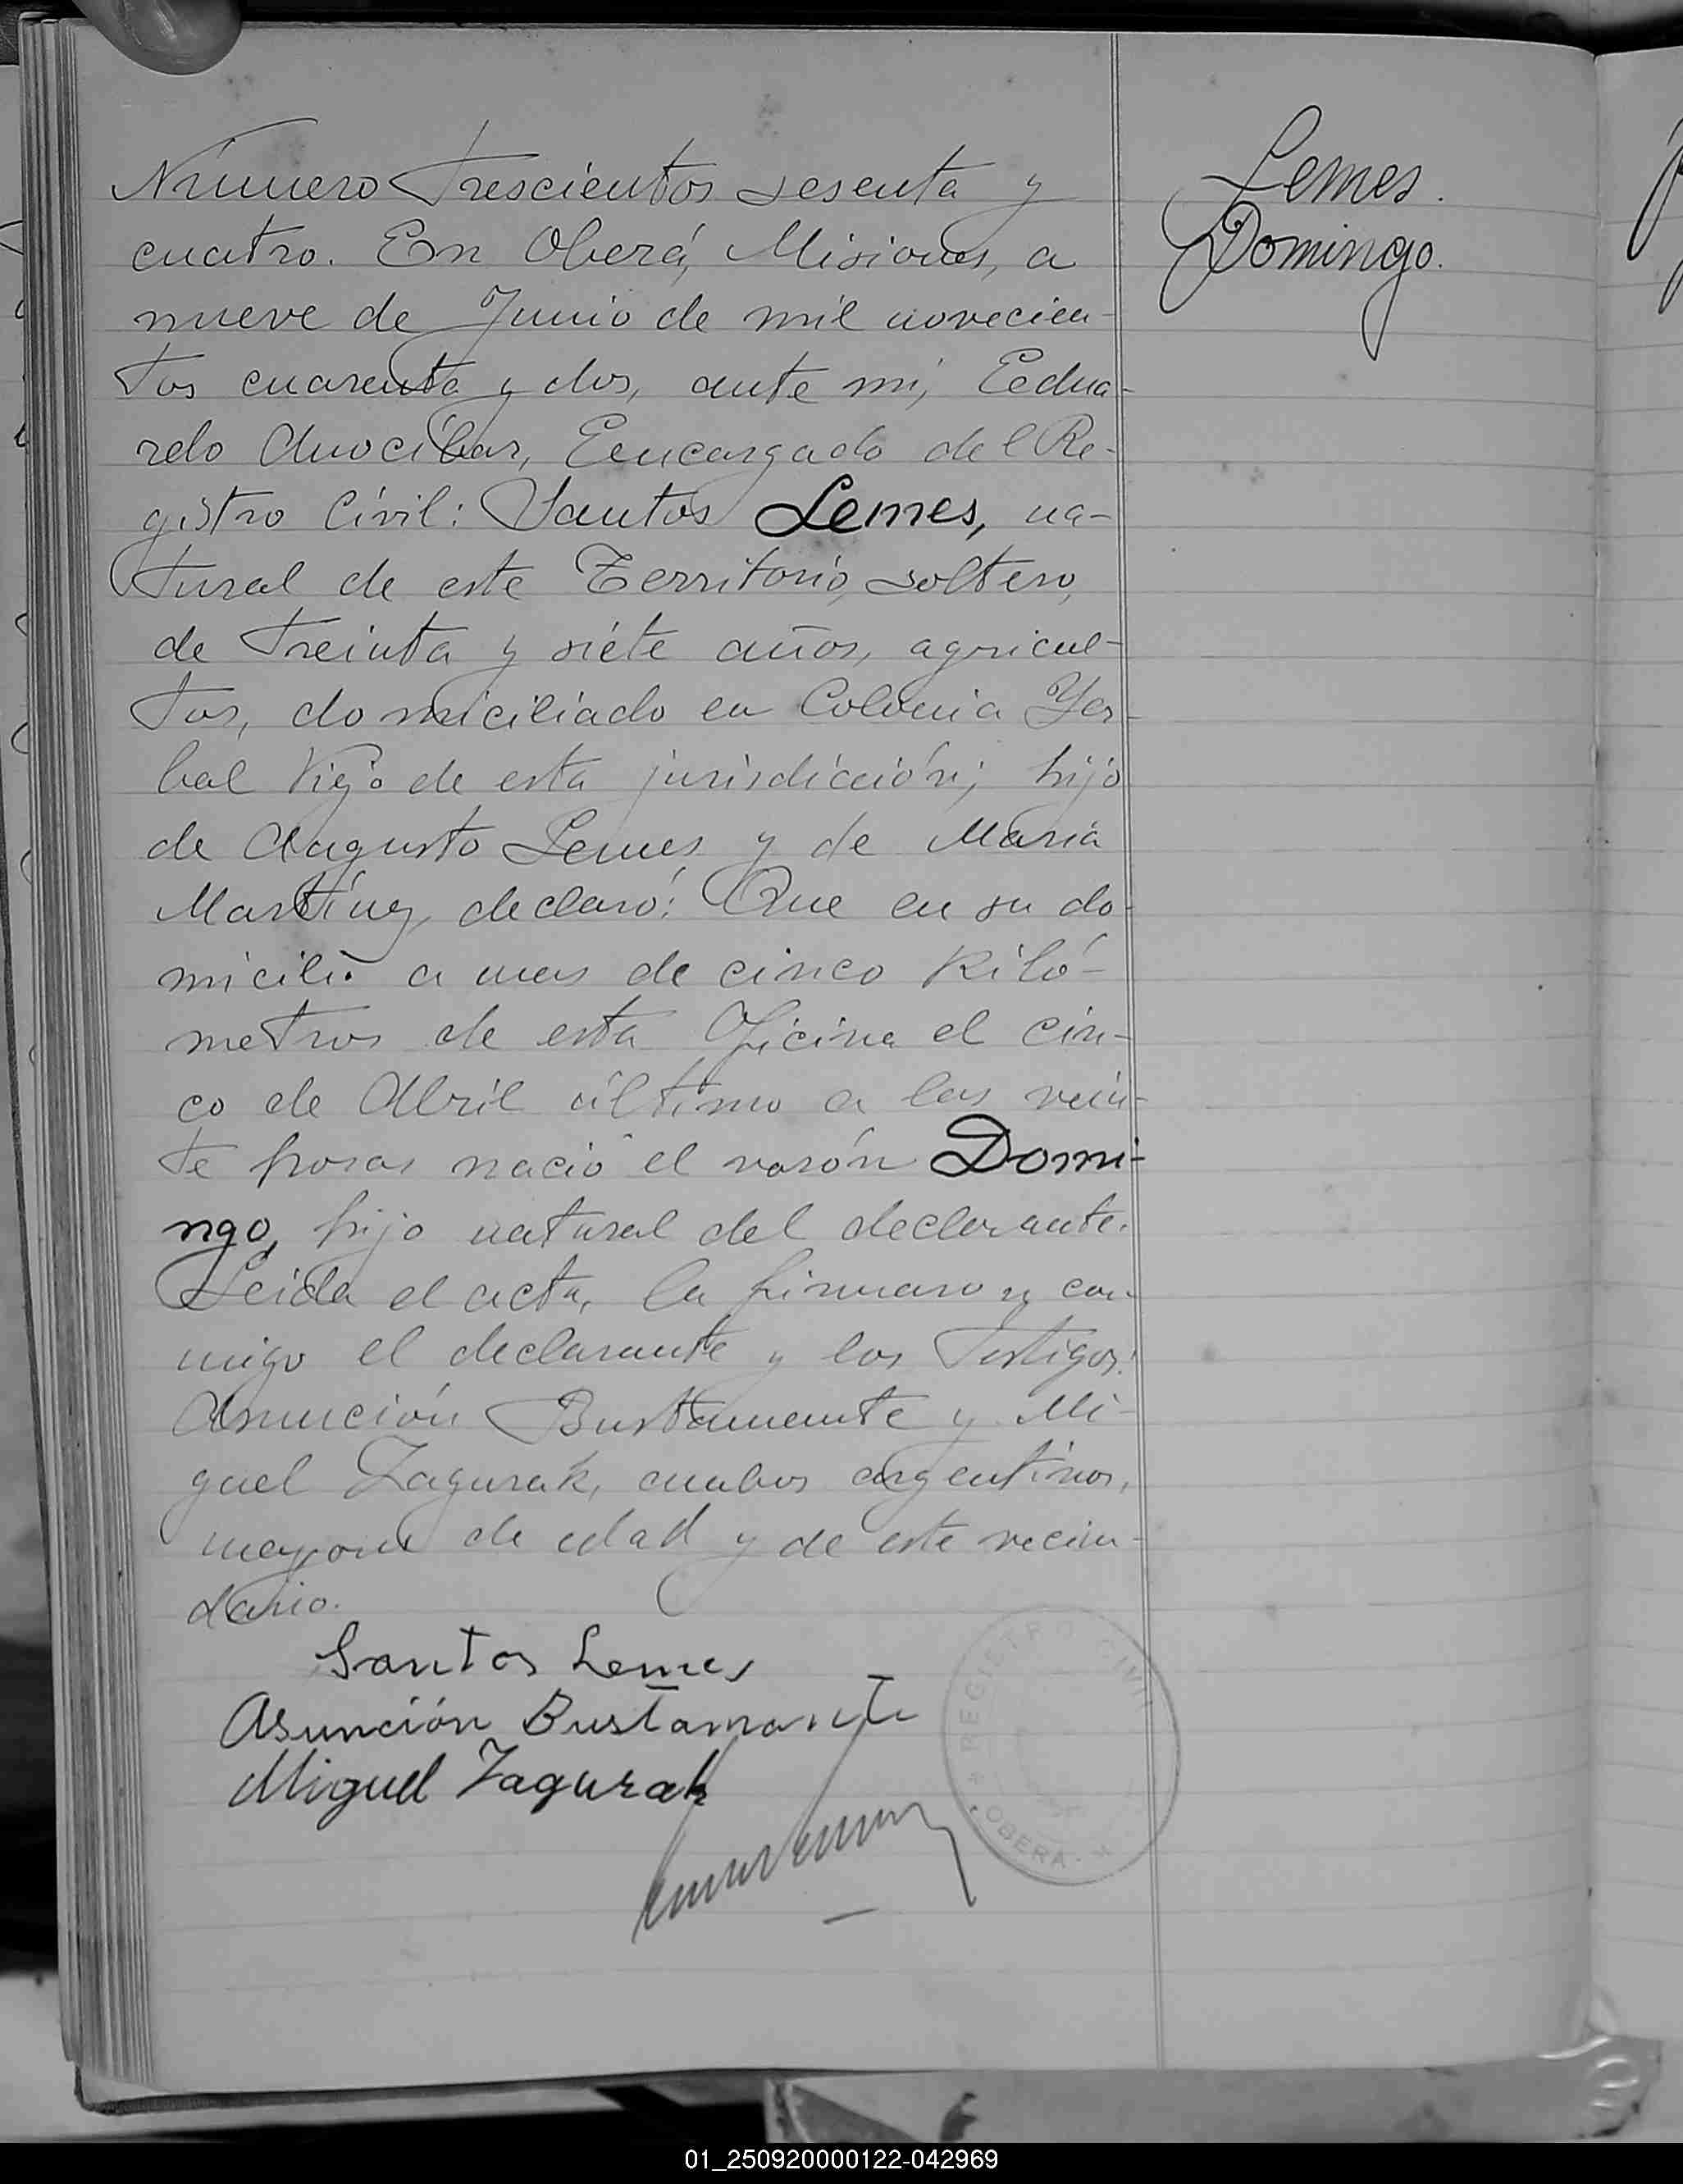 Número Trescientos sesenta y
cuatro. En Oberá, Misiones, a
nueve de Junio de mil novecien-
tos cuarenta y dos, ante mi, Eedua-
rdo Anocíbar, Eencargado del Re-
gistro Civil: Santos Lemes, na-
tural de este Territorio, soltero,
de treinta y siete años, agricul-
tor, domiciliado en Colonia Yer-
bal Viejo de esta jurisdicción; hijo
de Augusto Lemes y de María
Martínez, declaró: Que en su do-
micilio a mas de cinco Kiló-
metros de esta Oficina el cin-
co de Abril último a las vein-
te horas nació el varón Domi-
ngo, hijo natural del declarante.
Leida el acta, la firmaron con-
migo el declarante y los testigos:
Asunción Bustamante y Mi-
guel Zagurak, ambos argentinos,
mayores de edad y de este vecin-
dario.
Santos Lemes
Asunción Bustamante
Miguel Zagurak
Lemes.
Domingo.
REGISTRO CIVIL
OBERÁ
01_250920000122-042969